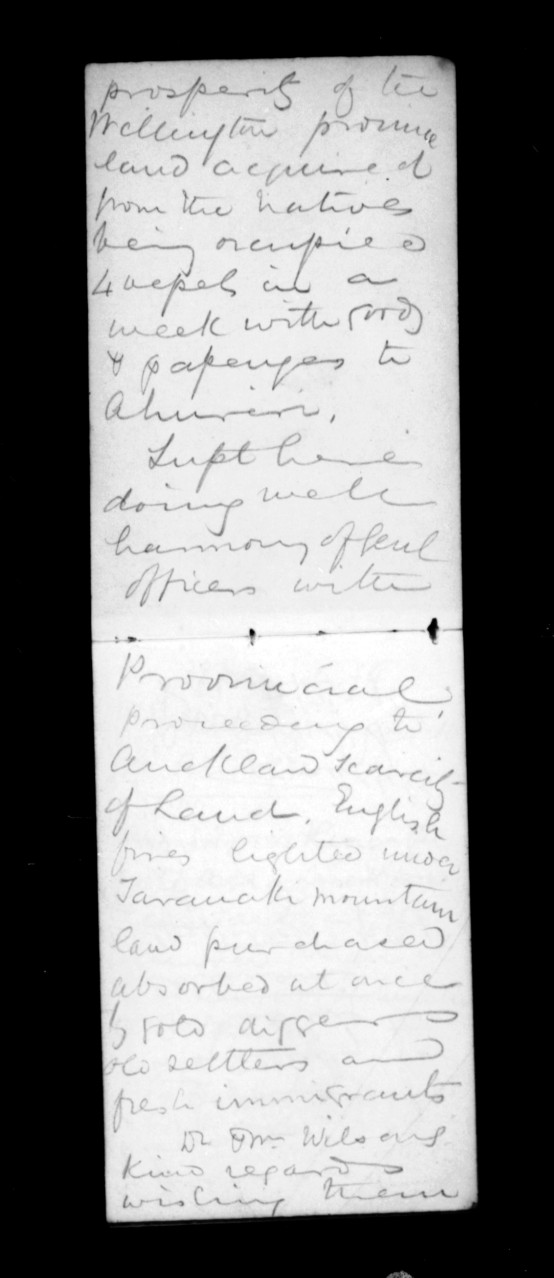 prosperity of the
Wellington province
land acquired
from the natives
being occupied
4 vessels in a
week with goods
& passengers to
Ahuriri.
Supt here is
doing well
harmony of Genl
officers with
Provincial
proceeding to
Auckland scarcity
of Land. English
fires lighted under
Taranaki mountain
land purchased
absorbed at once
by gold diggers
old settlers and
fresh immigrants
Dr & Mrs Wilsons
kind regards
wishing them